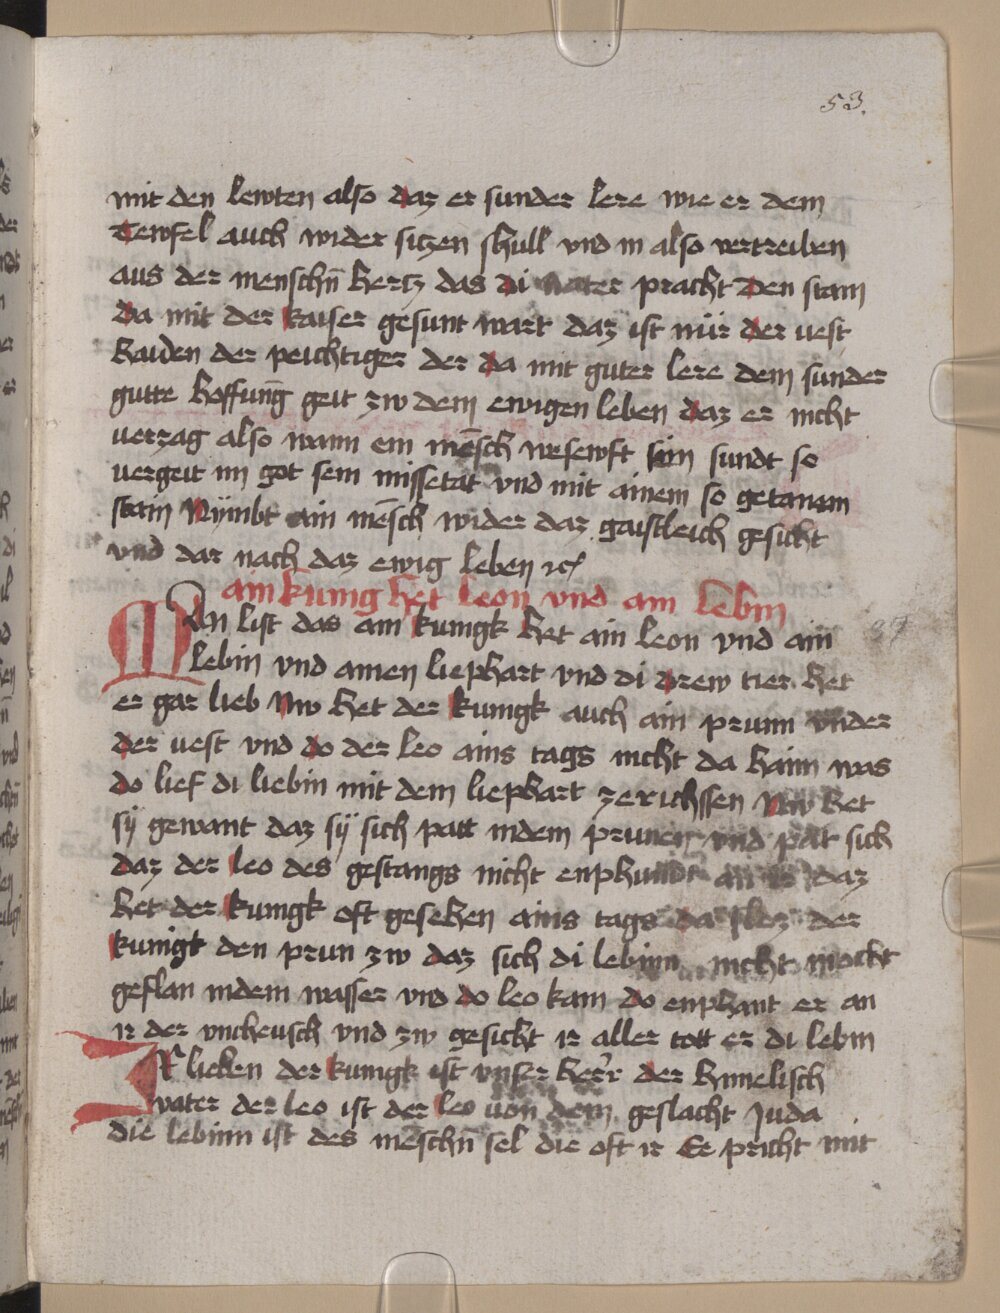 53.
mit den lewten also daz er sunder lere wie er dem
Tewfel auch wider sitzen schull vnd in also vertreiben
aus der menschn̄ hertz das di nater pracht Den stain
Da mit der kaiser gesunt wart daz ist nür der vest
haiden der peichtiger der da mit guter lere dem sunder
gutte hoffunḡ geit zw dem ewigen leben daz er nicht
verzag also wann ein mēsch wesewft sein sundt so
vergeit im got sein missetat vnd mit ainem so getanam
stain Nÿmbt ain mēsch wider daz gaistleich gesicht
vnd dar nach daz ewig leben ꝛc
ain kunig het leon vnd ain lebin
Man list das ain kunigk het ain leon vnd ain
lebin vnd ainen liephart vnd di drew tier het
er gar lieb Nw het der kunigk auch ain prunn vnder
der vest vnd do der leo ains tags nicht da haim was
do lief di liebin mit dem liephart zerichssen Nw het
sÿ gewant daz sÿ sich patt indem prunen vnd patt sich
daz der leo des gestangs nicht enphundt daz
het der kunigk oft gesehen ains tags da sloz der
kunigk den prun zw daz sich di lebinn nicht mocht
geflan indem wasser vnd do leo kam do enphant er an
ir der vncheusch vnd zw gesicht ir aller tott er di lebin
Ir lieben der kunigk ist vnser herr der himelisch
vater der leo ist der leo von dem geslacht Juda
die lebinn ist des mēschn̄ sel die oft ir Ee pricht mit